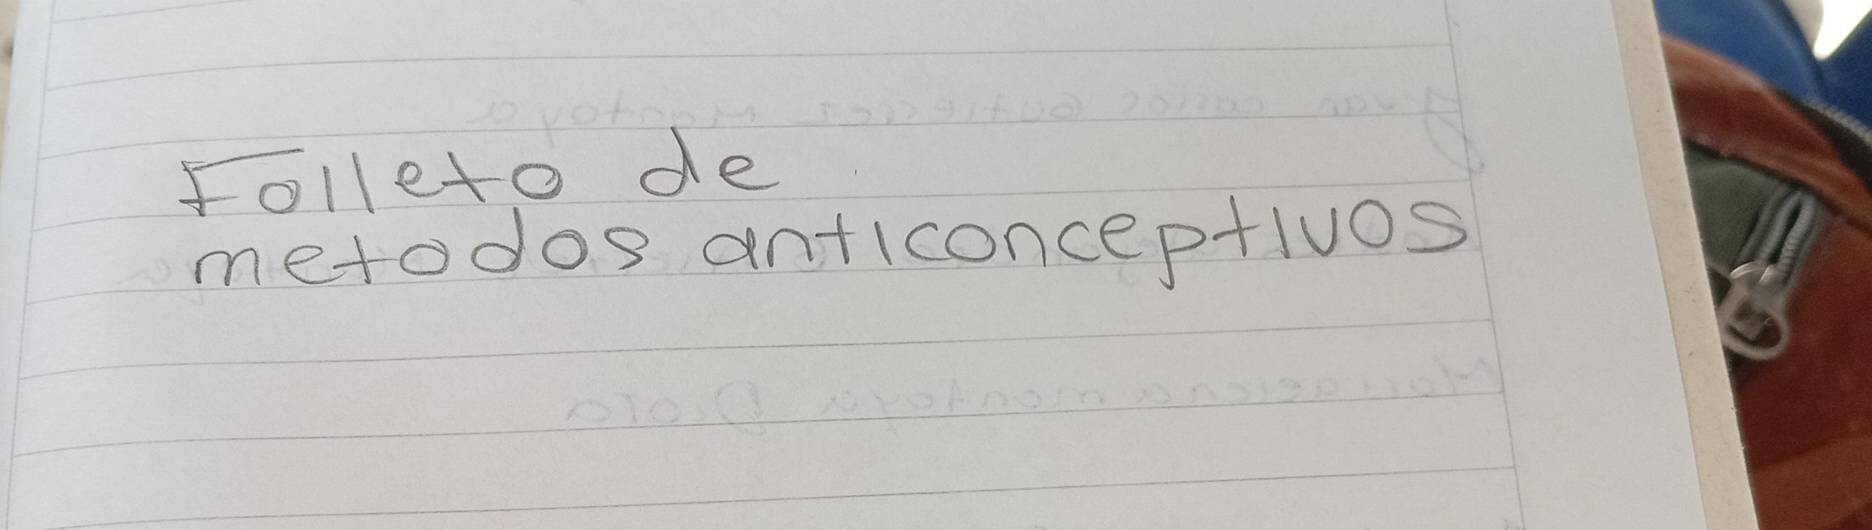 Folleto de
metodos anticonceptivos